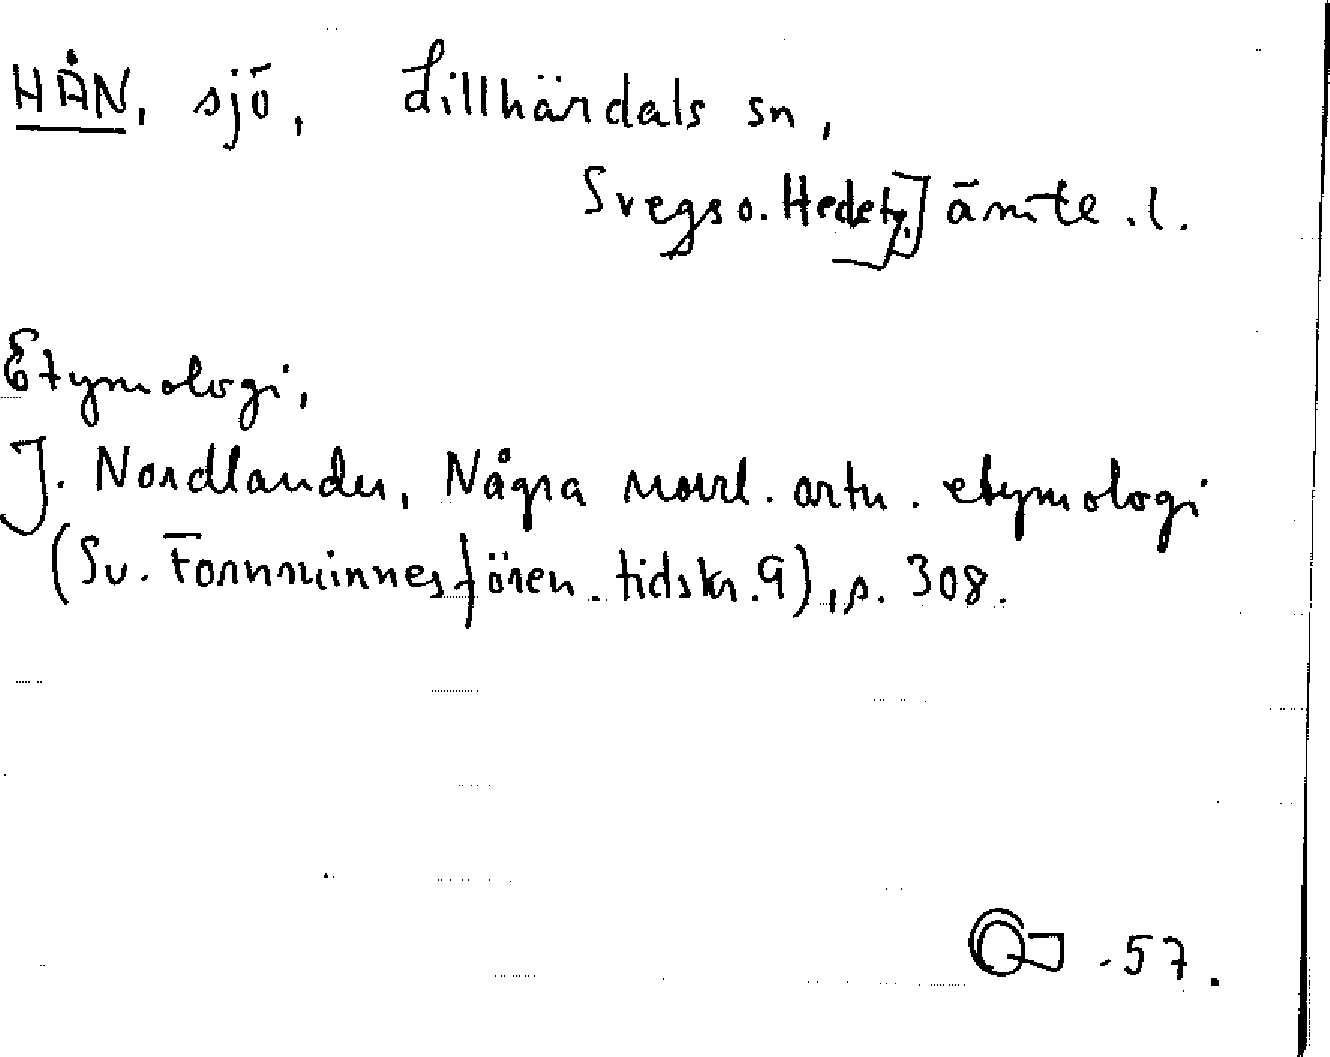 HÅN, sjö, Lillhärdals sn,
Svegs o. Hede tg. Jämtl. l.
Etymologi,
J. Nordlander, Några norrl. ortn. etymologi
(Sv. Fornminnesfören. tidskr. 9), s. 308.
-57.